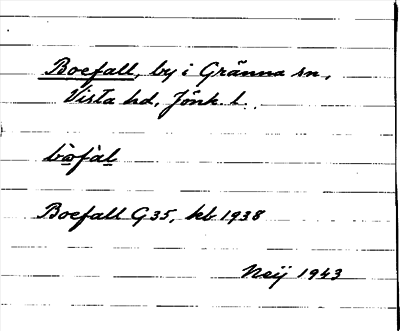 Boefall, by i Gränna sn,
Vista hd, Jönk. l.
bo̲fàl̲
Boefall G 35, kb 1938
Neij 1943